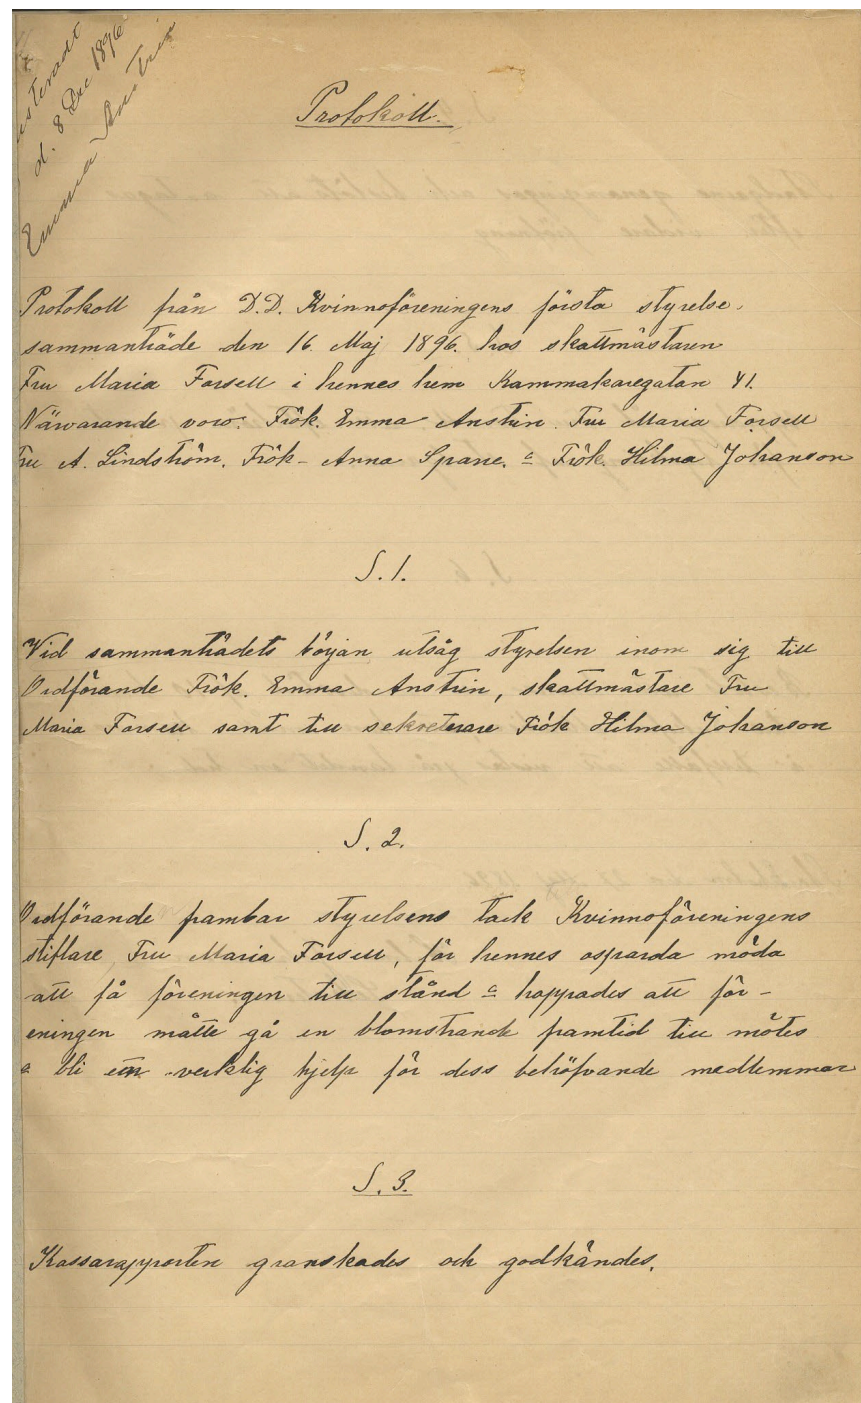 justeradt
d. 8 Dec 1896
Emma Anstrin
Protokoll.
Protokoll från D.D. Kvinnoföreningens första styrelse-
sammanträde den 16. Maj 1896. hos skattmästaren
Fru Maria Forsell i hennes hem Kammakaregatan 41.
Närvarande voro: Frök. Emma Anstrin. Fru Maria Forsell
Fru A. Lindström. Frök- Anna Spare. & Frök. Hilma Johanson
§. 1.
Vid sammanträdets början utsåg styrelsen inom sig till
Ordförande Frök. Emma Anstrin, skattmästare Fru
Maria Forsell samt till sekreterare Frök Hilma Johanson
§. 2.
Ordförande frambar styrelsens tack Kvinnoföreningens
stiftare Fru Maria Forsell, för hennes osparda möda
att få föreningen till stånd & hoppades att för-
eningen måtte gå en blomstrande framtid till mötes
& bli en verklig hjelp för dess behöfvande medlemmar
§. 3.
Kassarapporten granskades och godkändes.